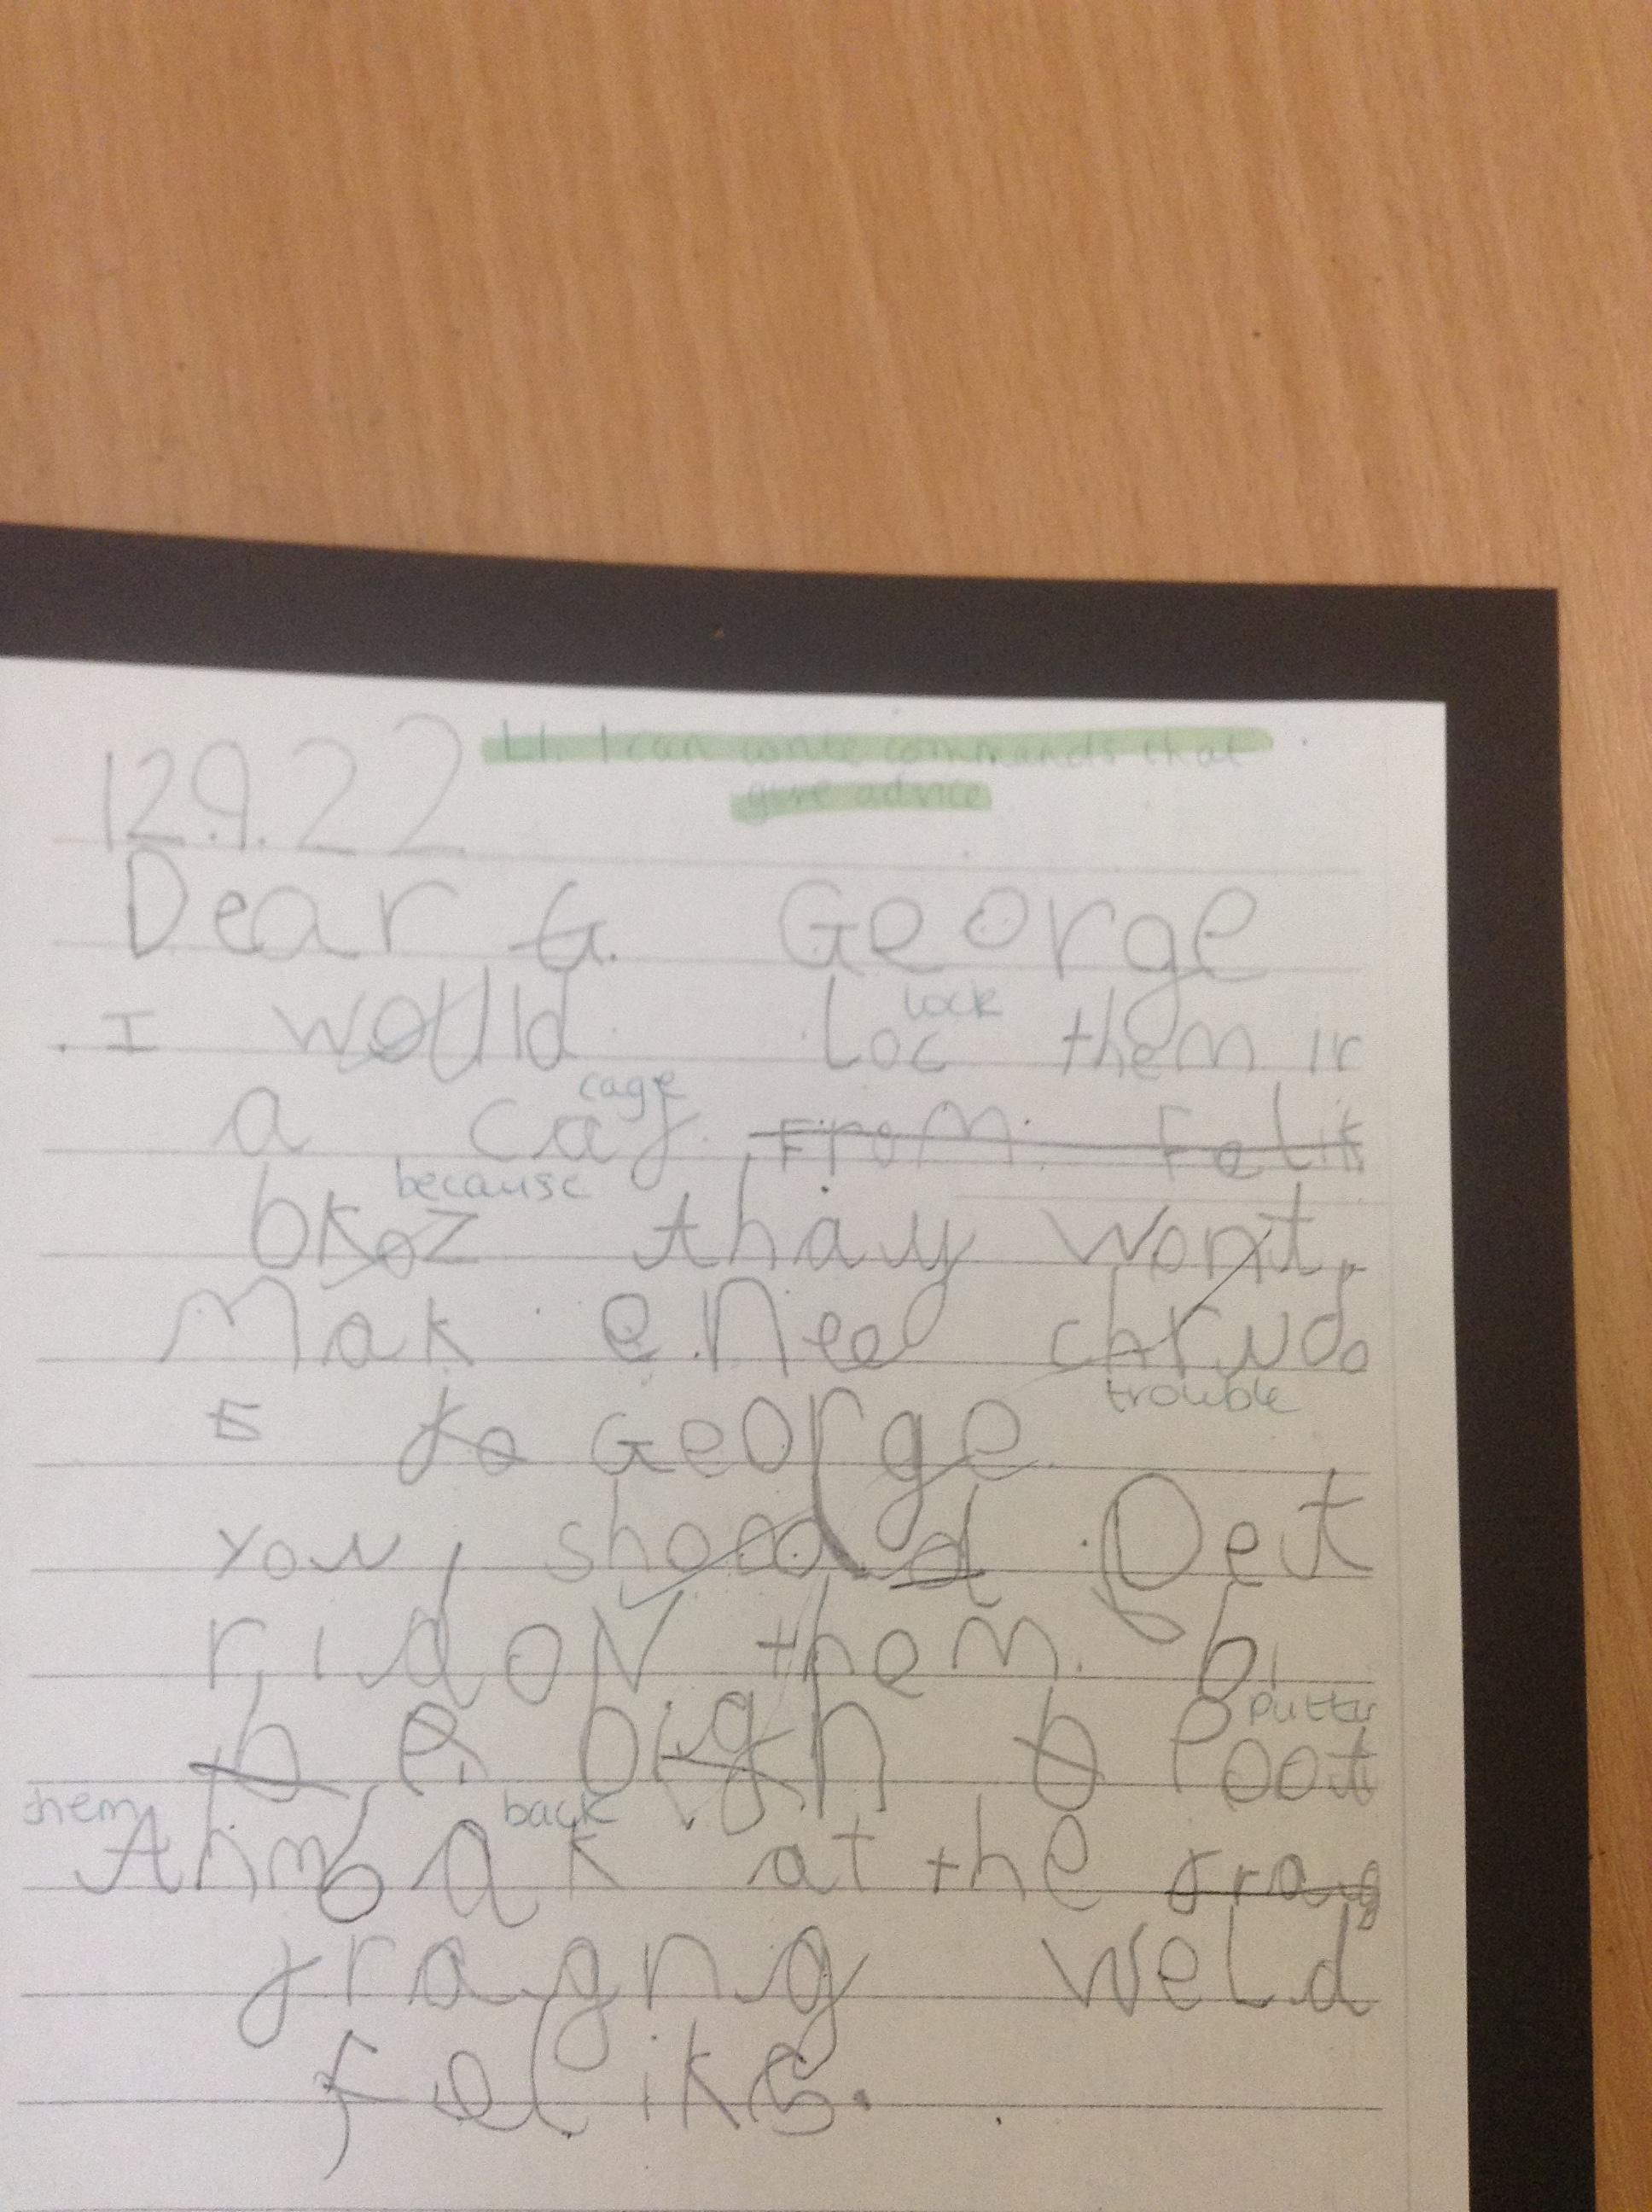 12.9.22
LI. I can write commands that
give advice
Dear G. George
lock
I would loc them in
cage
a caj. From Felik
because
bkoz thay wont.
Mak enee chrudo
trouble
to George.
you shood d Det
rid ov them. b.
putting
b e bigh b Poot
them back
thm bak at the
jragng weld
feliks.